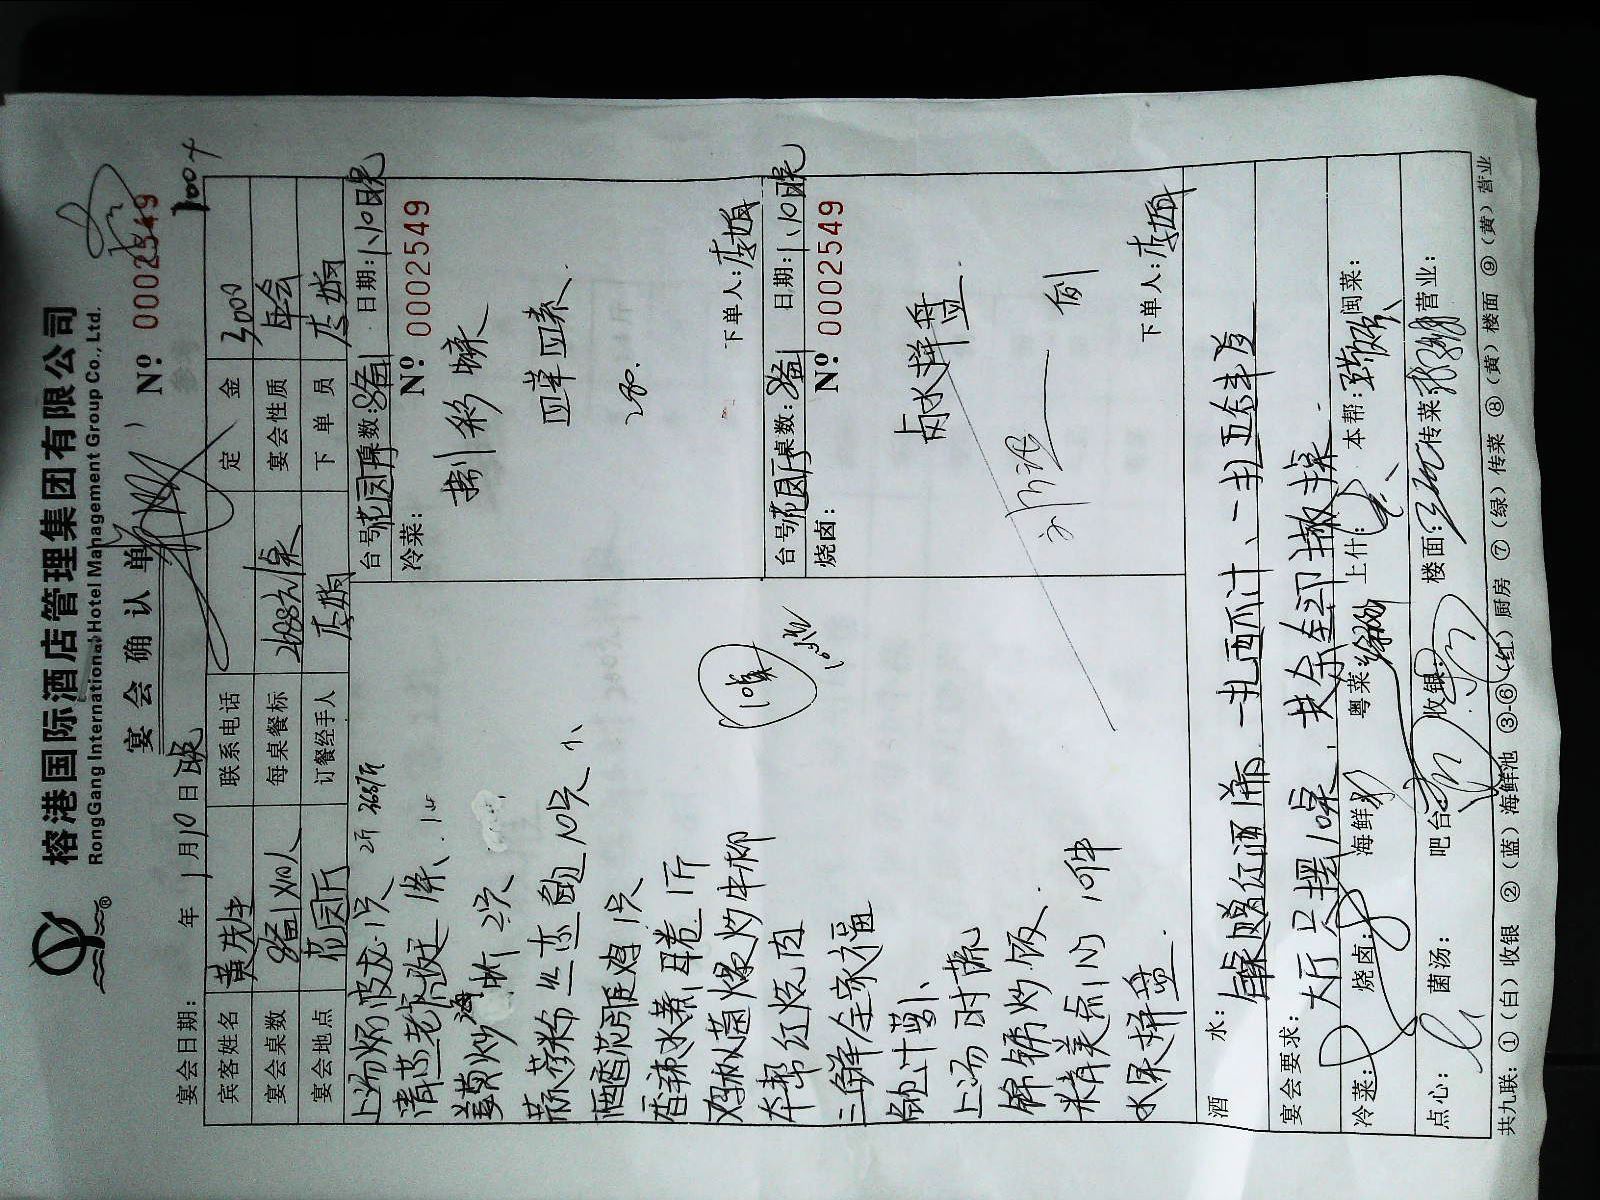 榕港国际酒店管理集团有限公司
RongGang International Hotel Management Group Co., Ltd.
宴会确认单
Nº: 0002549
100+
宴会日期: 年 1月10日晚
宾客姓名 黄先生 联系电话 定金 3000
宴会桌数 8备1 X10人 每桌餐标 2688元/桌 宴会性质 年会
宴会地点 花园厅 订餐经手人 李娟 下单员 李娟
上汤焗波龙1只
清蒸老虎斑1条
姜葱炒海蟹2只
蒜蓉粉丝蒸鲍10只
酒香花雕鸡1只
香辣水煮耳卷1斤
鸡枞菌爆炒牛柳
本帮红烧肉
三鲜全家福
鲍汁萝卜
上汤时蔬
锦锈炒饭
精美点心10件
水果拼盘
10桌
台号: 花园厅 桌数: 8备1 日期: 1.10晚
冷菜:
Nº: 0002549
四荤四素
下单人: 李娟
台号: 花园厅 桌数: 8备1 日期: 1.10晚
烧卤:
Nº: 0002549
卤水拼盘
例
下单人: 李娟
酒水: 每桌赠红酒1瓶、一扎西瓜汁、一扎玉米汁
宴会要求: 大厅只摆10桌
冷菜: 烧卤: 海鲜: 粤菜: 上什: 本帮: 闽菜:
点心: 菌汤: 吧台: 收银: 楼面: 传菜: 营业:
共九联: ①(白)收银 ②(蓝)海鲜池 ③-⑥(红)厨房 ⑦(绿)传菜 ⑧(黄)楼面 ⑨(黄)营业